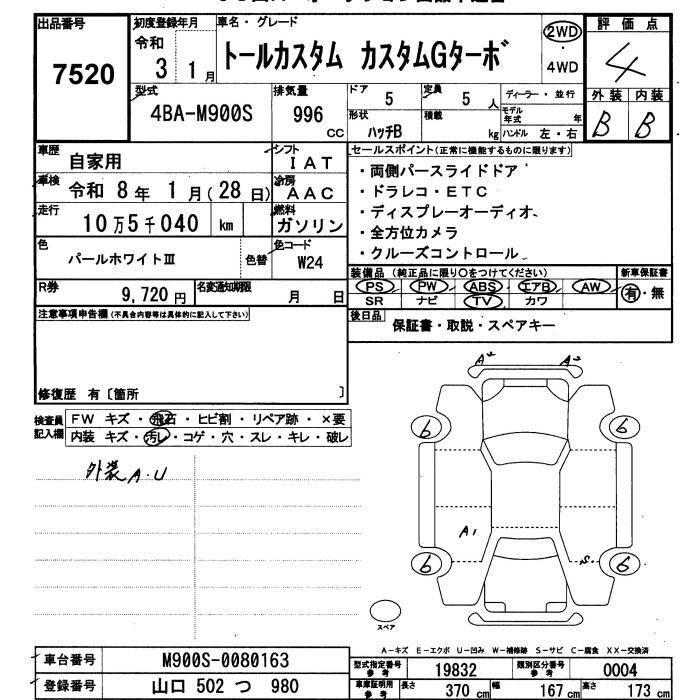 出品番号
7520
初度登録年月
令和
3 1月
車名・グレード
トールカスタム カスタムGターボ
2WD
4WD
評価点
4
外装 内装
B B
型式
4BA-M900S
排気量
996
CC
ドア
5
定員
5 人
ディーラー・並行
形状
ハッチB
積載
kg
モデル年式
年
ハンドル 左・右
車歴
自家用
シフト
IAT
車検
令和 8年 1月(28日)
冷房
AAC
走行
10万5千040 km
燃料
ガソリン
色
パールホワイトⅢ
色替
色コード
W24
R券
9,720 円
名変通知期限
月 日
セールスポイント(正常に機能するものに限ります)
・両側パースライドドア
・ドラレコ・ETC
・ディスプレーオーディオ、
・全方位カメラ
・クルーズコントロール
装備品 (純正品に限り○をつけてください)
PS PW ABS エアB AW
SR ナビ TV カワ
新車保証書
有・無
後日品
保証書・取説・スペアキー
注意事項申告欄(不具合内容等は具体的に記入して下さい)
修復歴 有〔箇所 〕
検査員記入欄
FW キズ・飛石・ヒビ割・リペア跡・×要
内装 キズ・汚レ・コゲ・穴・スレ・キレ・破レ
外装 A・U
A2 A2
6 6
A1
S
6 6
スペア
A-キズ E-エクボ U-凹み W-補修跡 S-サビ C-腐食 XX-交換済
車台番号
M900S-0080163
登録番号
山口 502 つ 980
型式指定番号 参考
19832
類別区分番号 参考
0004
車庫証明用 参考
長さ 370 cm
幅 167 cm
高さ 173 cm